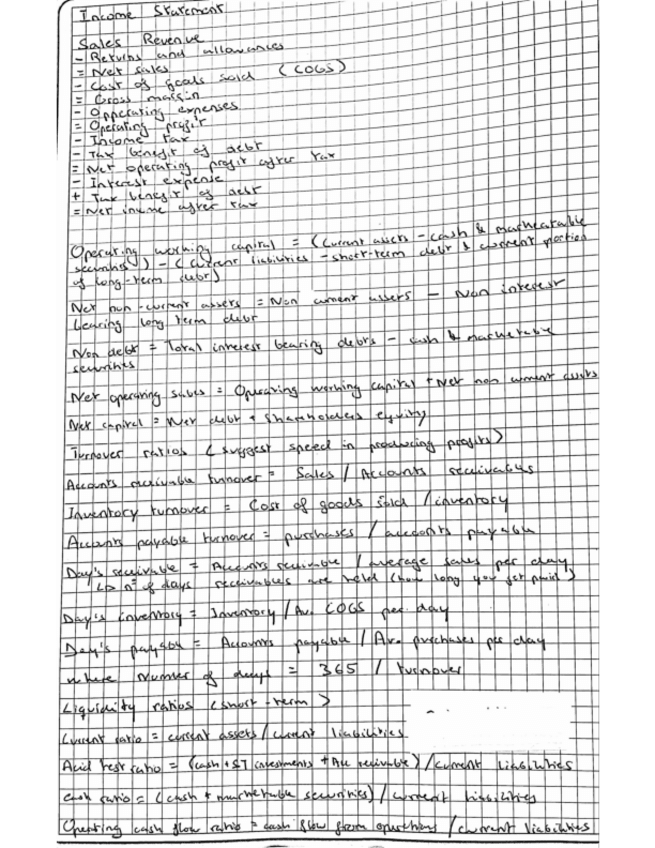 Income Statement
Sales Revenue
- Returns and allowances
= Net sales
- Cost of goals sold (COGS)
= Gross margin
- Opperating expenses
= Operating profit
- Income tax
- Tax benefit of debt
= Net operating profit after tax
- Interest expense
+ Tax benefit of debt
= Net income after tax
Operating working capital = (Current assets - cash & marheatable
securities) - (current liabilities - short-term debt & current portion
of long-term debt)
Net non-current assets = Non current assets - Non interest
bearing long term debt
Non debt = Total interest bearing debts - cash & marketable
securities
Net operating = Operating working capital + Net non current assets
Net capital = Net debt + Shareholders equity
Turnover ratios (suggest speed in producing profits)
Accounts receivable turnover = Sales / Accounts receivables
Inventory turnover = Cost of goods sold / inventory
Accounts payable turnover = purchases / accounts payable
Day's receivable = Accounts receivable / average sales per day
↳ nº of days receivables are held (how long you get paid)
Day's inventory = Inventory / Av. COGS per day
Day's payable = Accounts payable / Av. purchases per day
where Number of days = 365 / turnover
Liquidity ratios (short-term)
Current ratio = current assets / current liabilities
Acid test ratio = (cash + ST investments + Acc receivable) / current liabilities
Cash ratio = (cash + marketable securities) / current liabilities
Operating cash flow ratio = cash flow from operations / current liabilities